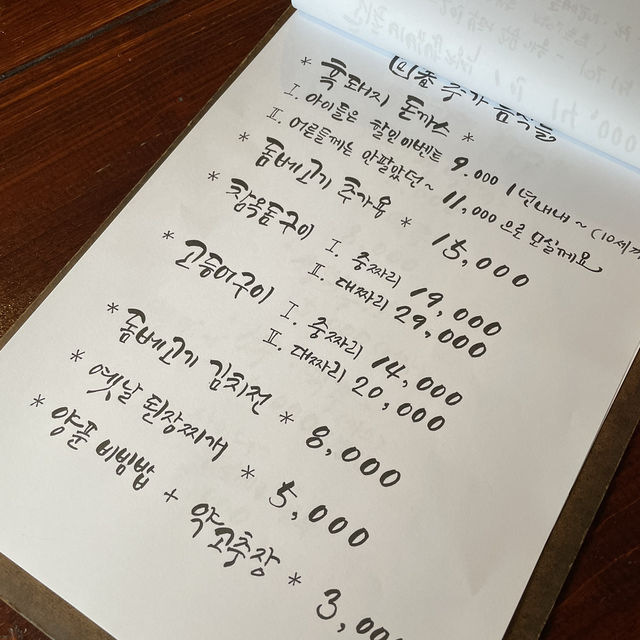 추가 음식들
* 흑돼지 돈까스 *
I. 아이들은 할인이벤트 9.000 1년내내~ (10세까
II. 어른들께는 아팔았던~ 11,000 으로 모실께요
* 돔베고기 추가용 * 15,000
* 참옥돔구이 I. 중짜리 19,000
II. 대짜리 29,000
* 고등어구이 I. 중짜리 14,000
II. 대짜리 20,000
* 돔베고기 김치전 * 8,000
* 옛날 된장찌개 * 5,000
* 양푼 비빔밥 + 약고추장 * 3,000